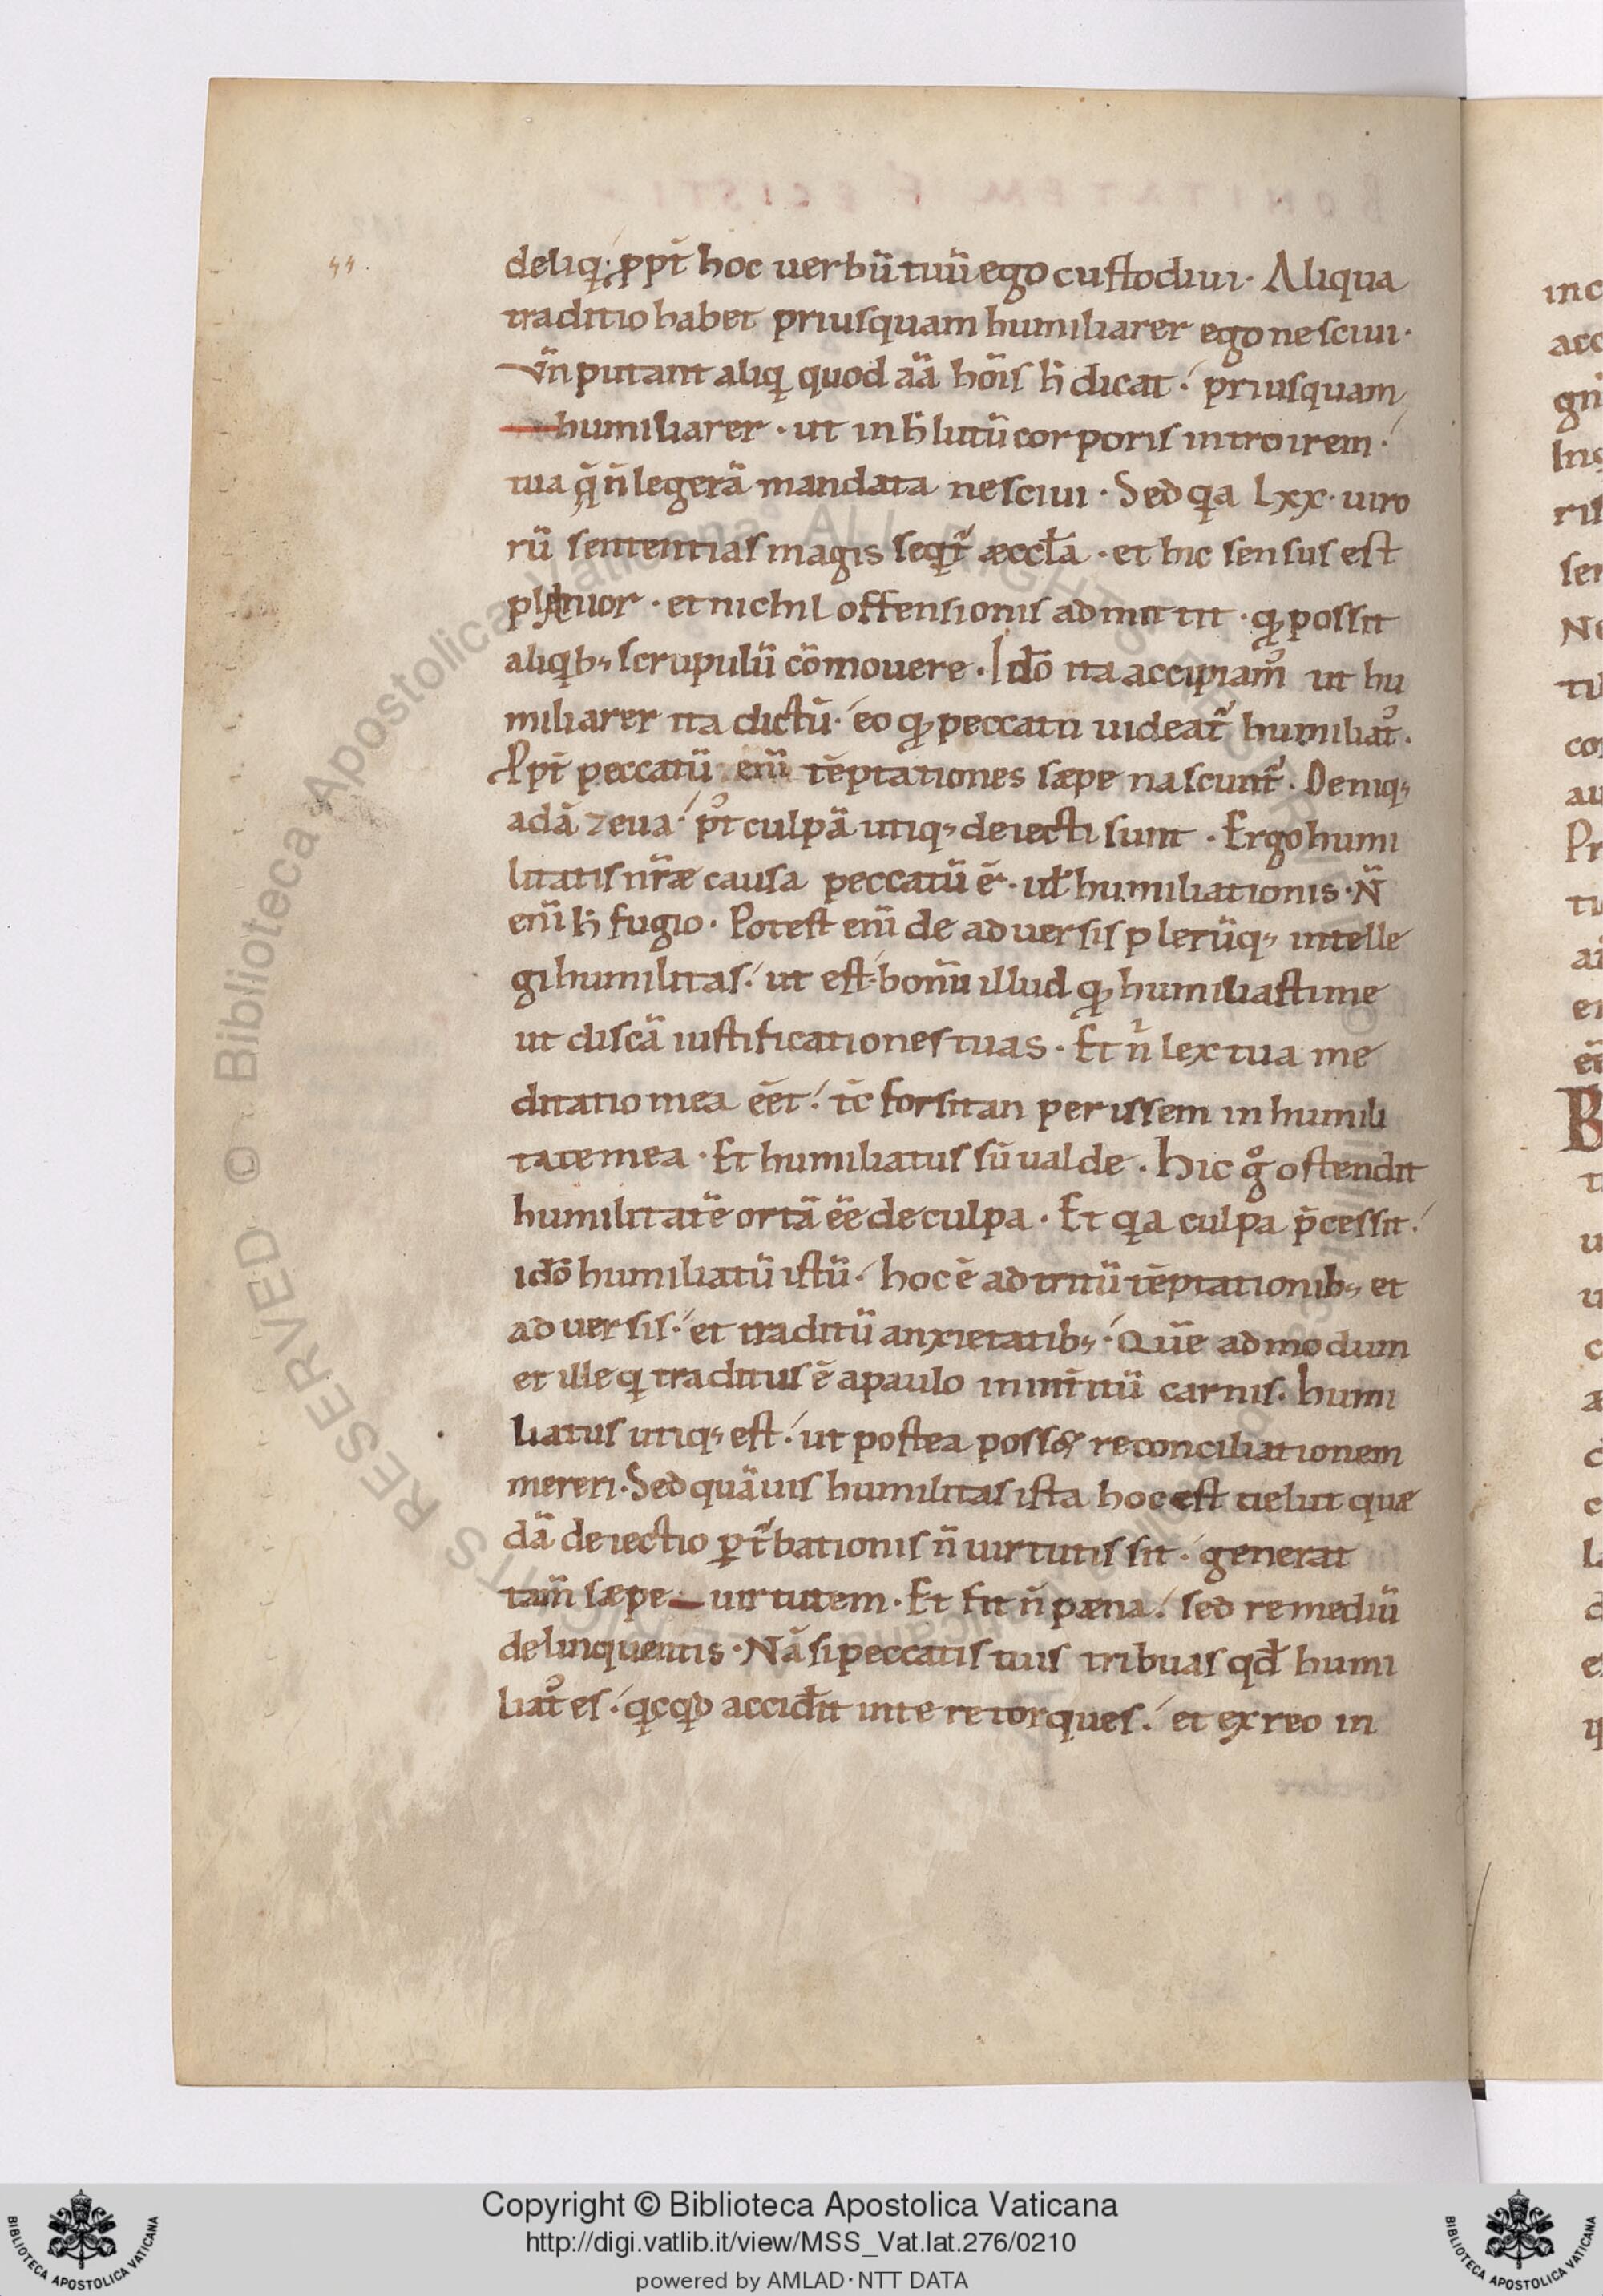 44.
deliq̣. ꝓpt̄ hoc uerbū tuū ego custodiui. Aliqua
traditio habet priusquam humiliarer ego nesciui.
un̄ putant aliq̣ quod aīa hōīs h̄ dicat. priusquam
humiliarer. ut in h̄ lutū corporis introirem.
tua q̄ n̄ legerā mandata nesciui. Sed qa Lxx. uiro
rū sententias magis seqt̄ æccl̄a. et hic sensus est
plenior. et nichil offensionis admittit. qđ possit
aliqb; scrupulū cōmouere. Idō ita accipiam̄ ut hu
miliarer ita dictū. eo qđ peccati uideat̄ humiliat᷒.
Ppt̄ peccatū enī tēptationes sæpe nascunt̄. Deniq;
adā ⁊ eua. pt̄ culpā utiq; deiecti sunt. Ergo humi
litatis nr̄æ causa peccatū ē. ul̄ humiliationis. N̄
enī h̄ fugio. Potest enī de aduersis plerūq; intelle
gi humilitas. ut est. bonū illud qđ humiliasti me
ut discā iustificationes tuas. Et n̄ lex tua me
ditatio mea eēt. tc̄ forsitan perissem in humili
tate mea. Et humiliatus sū ualde. Hic gͦ ostendit
humilitatē ortā eē de culpa. Et qa culpa p̄cessit.
idō humiliatū istū. hoc ē adtritū tēptationib; et
aduersis. et traditū anxietatib;. Quē admodum
et ille q̣ traditus ē a paulo in int̄itū carnis. humi
liatus utiq; est. ut postea posset reconciliationem
mereri. Sed quāuis humilitas ista hoc est uelut quæ
dā deiectio ꝑt̄bationis n̄ uirtutis sit. generat
tam̄ sæpe uirtutem. Et fit n̄ pæna. sed remediū
delinquentis. Nā si peccatis tuis tribuas qd̄ humi
liat᷒ es. qcqd accid̄it in te retorques. et ex reo in
Copyright © Biblioteca Apostolica Vaticana
http://digi.vatlib.it/view/MSS_Vat.lat.276/0210
powered by AMLAD·NTT DATA